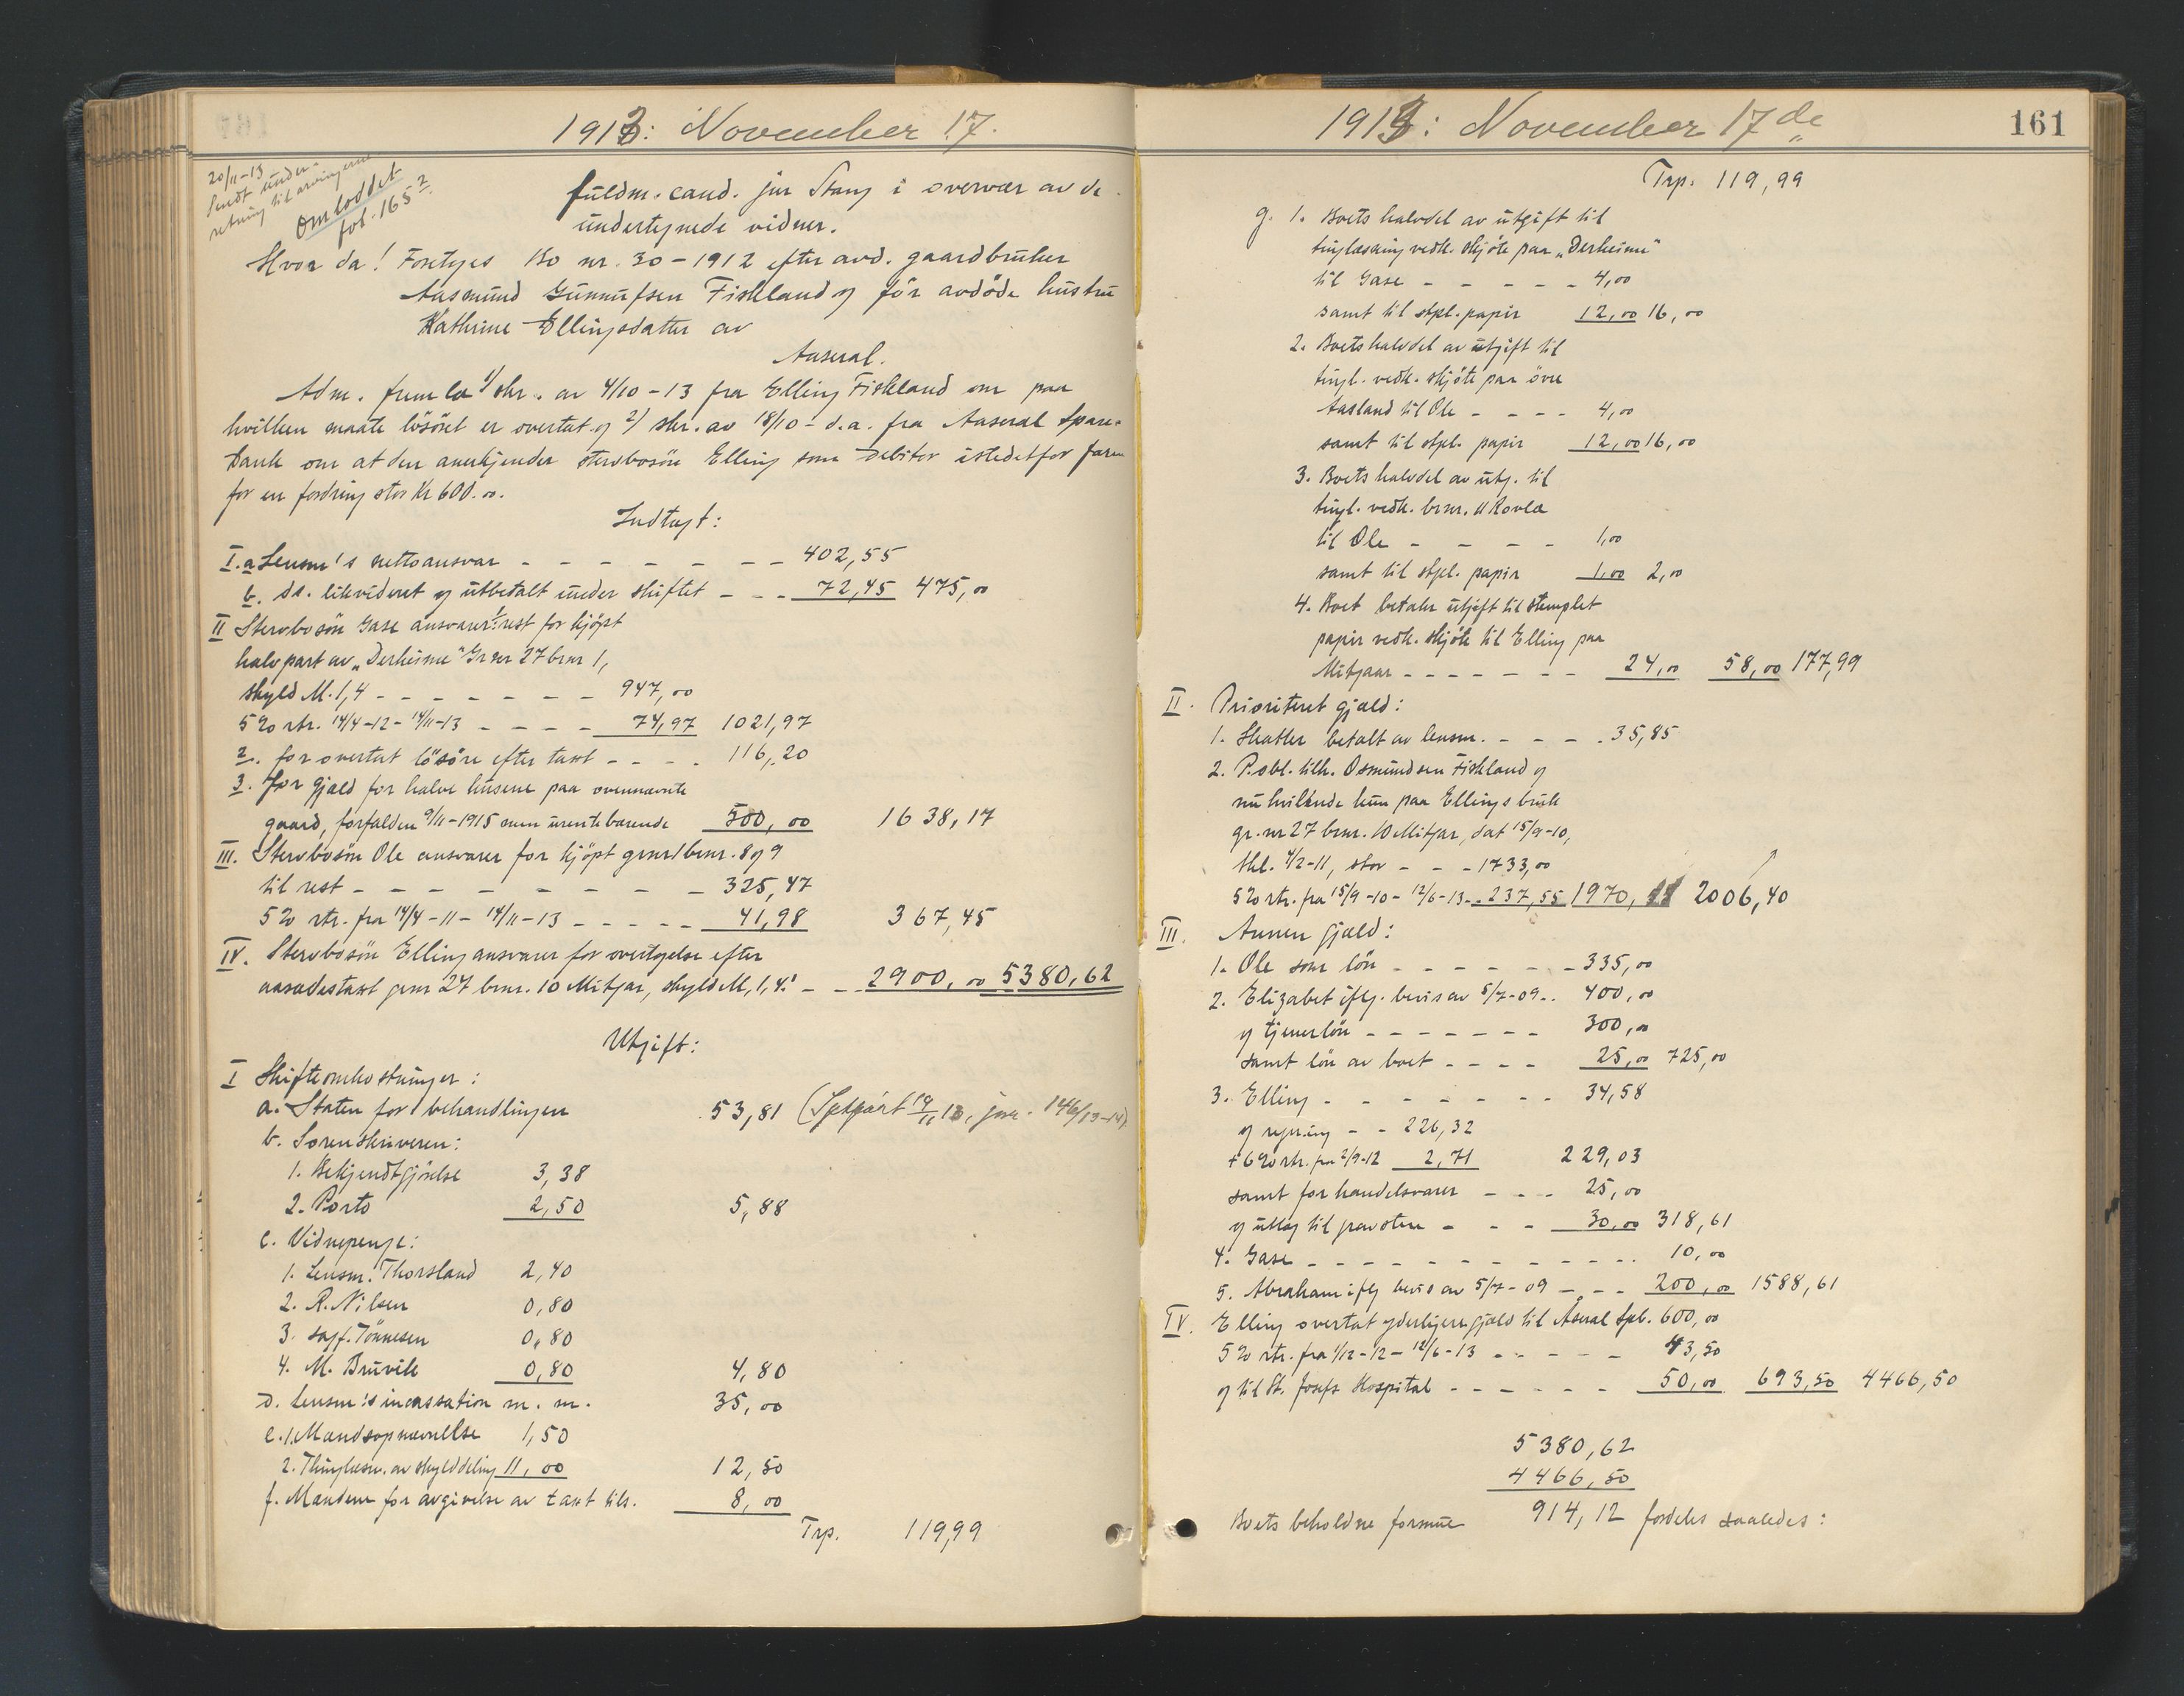 1913: November 17.
20/11-13
Sendt under-
retning til arvingerne
Omloddet
fol. 165²
fuldm. cand. jur Stang i overvær av de
undertegnede vidner.
Hvor da! Foretoges Bo nr. 30-1912 efter avd. gaardbruker
Aasmund Gunnufsen Fiskland og før avdøde hustru
Kathrine Ellingsdatter av
Aaseral.
Adm. fremla 1/ skr. av 4/10-13 fra Elling Fiskland om paa
hvilken maate løsøret er overtat og 2/ skr. av 18/10 d.a. fra Aaseral Spare-
bank om at den anerkjender stervbosøn Elling som debitor istedetfor faren
for en fordring stor Kr 600.00.
Indtægt:
I. a Lensm's nettoansvar - - - - - - - 402,55
b. do. likvideret og utbetalt under skiftet - - - 72,45 475,00
II Stervbosøn Gase ansvarer 1/: rest for kjøpt
halvpart av "Derheime" Gr nr 27 brnr 1,
skyld M. 1,4 - - - - - - - 947,00
5% rtr. 14/4-12 - 14/11-13 - - - - 74,97 1021,97
2. for overtat løsøre efter taxt - - - - 116,20
3. for gjæld for halve husene paa ovennævnte
gaard, forfalden 9/11-1915 men urentebærende 500,00 1638,17
III. Stervbosøn Ole ansvarer for kjøpt grnr 1 brnr. 8 og 9
til rest - - - - - - - - 325,47
5% rtr. fra 14/4-11 - 14/11-13 - - - - - 41,98 367,45
IV. Stervbosøn Elling ansvarer for overtagelse efter
aasædestaxt grnr 27 brnr. 10 Mitjar, skyld M, 1,4: - - 2900,00 5380,62
Utgift:
I Skifteomkostninger:
a. Staten for behandlingen 53,81 146/13-14)
b. Sorenskriveren:
1. Bekjendtgjørelse 3,38
2. Porto 2,50 5,88
c. Vidnepenge:
1. Lensm. Thorsland 2,40
2. R. Nilsen 0,80
3. sagf. Tønnesen 0,80
4. M. Bruvik 0,80 4,80
d. Lensm's incassation m. m. 35,00
e. 1. Mandsopnævnelse 1,50
2. Thinglæsn. av skylddeling 11,00 12,50
f. Mændene for avgivelse av taxt tils. 8,00
Trp. 119,99
1913: November 17de
161
Trp. 119,99
g. 1. Boets halvdel av utgift til
tinglæsning vedk. skjøte paa "Derheime"
til Gase - - - - - 4,00
samt til stpl. papir 12,00 16,00
2. Boets halvdel av utgift til
tingl. vedk. skjøte paa øvre
Aasland til Ole - - - - 4,00
samt til stpl. papir 12,00 16,00
3. Boets halvdel av utg. til
tingl. vedk. brnr. 11 Rovla
til Ole - - - - 1,00
samt til stpl. papir 1,00 2,00
4. Boet betaler utgift til stemplet
papir vedk. skjøte til Elling paa
Mitjaar - - - - - - - 24,00 58,00 177,99
II. Prioriteret gjæld:
1. Skatter betalt av lensm. - - - - 35,85
2. P. obl. tilh. Osmundsen Fiskland og
nu hvilende kun paa Ellings bruk
gr. nr 27 brnr. 10 Mitjar, dat 15/9-10,
thl. 4/2-11, stor - - - 1733,00
5% rtr. fra 15/9-10 - 12/6-13 - - 237,55 1970, 2006,40
III. Annen gjæld:
1. Ole som løn - - - - - - 335,00
2. Elizabet iflg. bevis av 5/7-09 - - 400,00
og tjenerløn - - - - - - - 300,00
samt løn av boet - - - - 25,00 725,00
3. Elling - - - - - - - 34,58
og regning - - 226,32
+ 6% rtr. fra 2/9-12 2,71 229,03
samt for handelsvarer - - - 25,00
og utlæg til gravsten - - - 30,00 318,61
4. Gase - - - - - - - - - - 10,00
5. Abraham iflg bevis av 5/7-09 - - - 200,00 1588,61
IV. Elling overtat yderligere gjæld til Åseral Spb. 600,00
5% rtr. fra 1/12-12 - 12/6-13 - - - - - 43,50
og til St. Josefs Hospital - - - - - - 50,00 693,50 4466,50
5380,62
4466,50
Boets beholdne formue 914,12 fordeles saaledes: